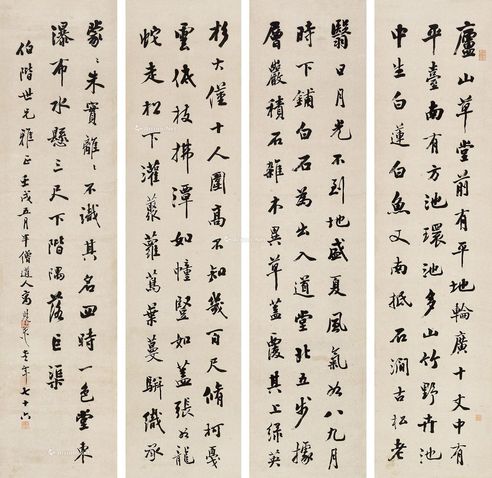 廬山草堂前有平地輪廣十丈中有
平臺南有方池環池多山竹野卉池
中生白蓮白魚又南抵石澗古松老
翳日月光不到地盛夏風氣如八九月
時下鋪白石為出入道堂北五步據
層巖積石雜木異草蓋覆其上綠英
杉大僅十人圍高不知幾百尺脩柯戛
雲低枝拂潭如幢豎如蓋張如龍
蛇走松下灌藂蘿蔦葉蔓駢織承
蒙〻朱實離〻不識其名四時一色堂東
瀑布水懸三尺下階隅落巨渠
伯階世兄雅正壬戌五月半僧道人 年七十六